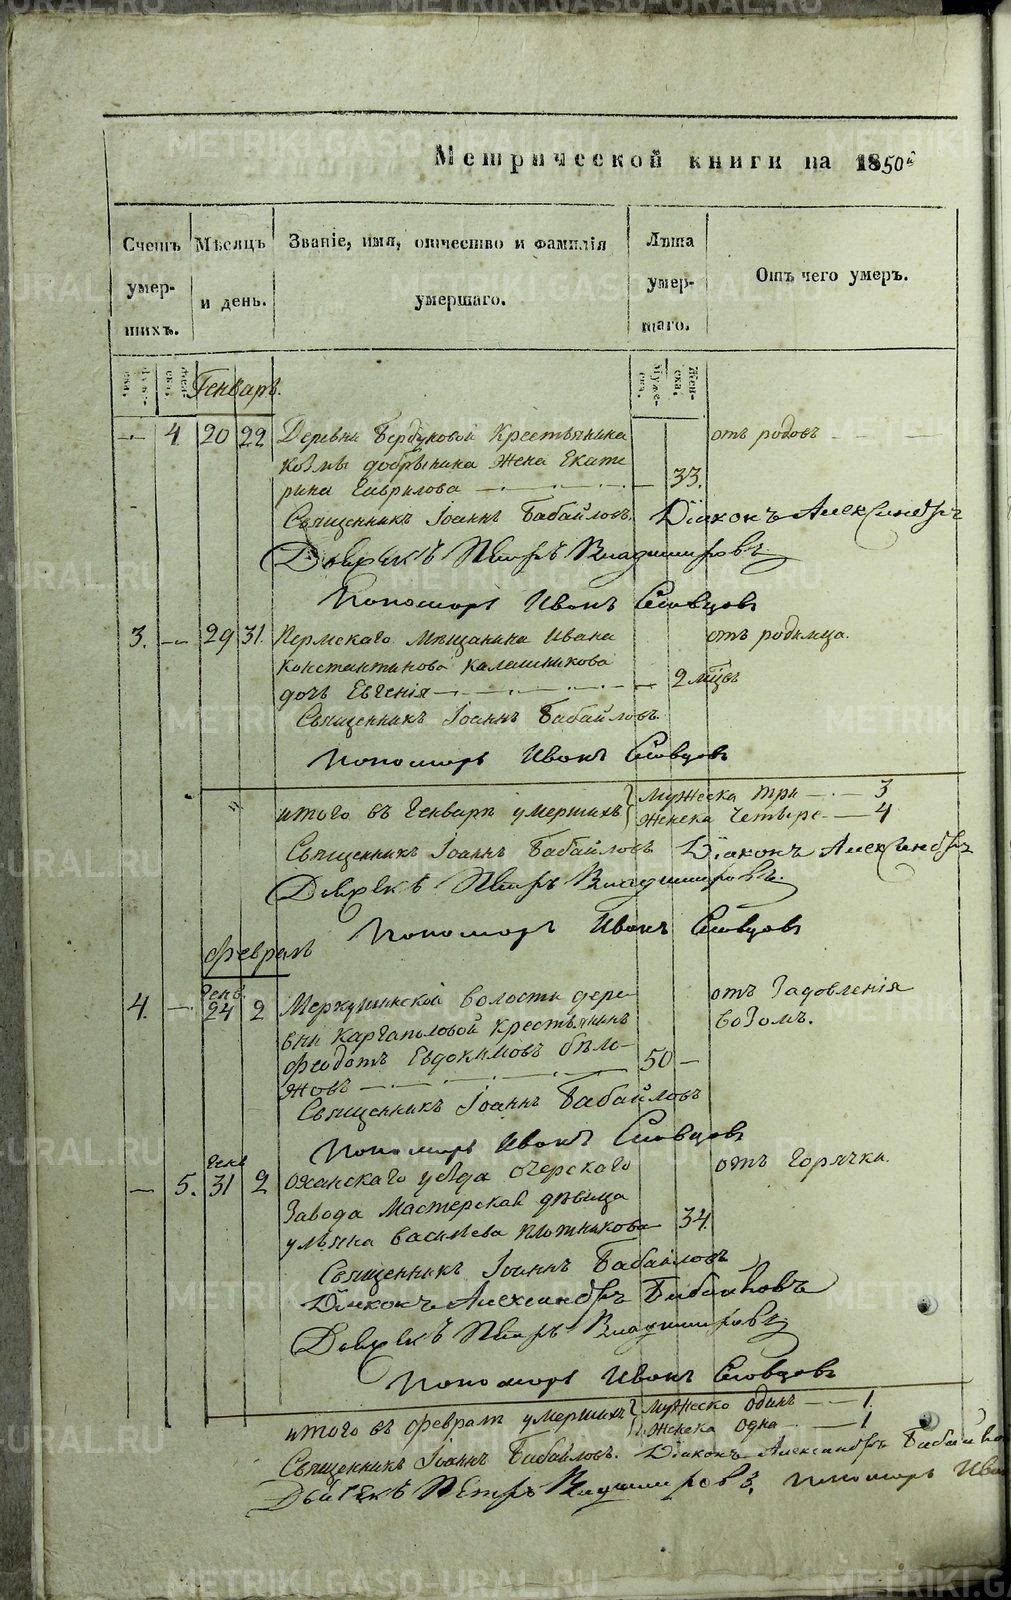 Метрической книги на 1850й
Счетъ умер-шихъ. Мѣсяцъ и день. Званіе, имя, отчество и фамилія умершаго. Лѣта умер-шаго. Отъ чего умеръ.
Муже-ска. Жен-ска. Муже-ска. Жен-ска.
Генварь.
— 4 20 22 Деревни Бердуковой Крестьянина отъ родовъ
козмы добрынина Жена Екате
рина Гаврилова — 33.
Священникъ Іоаннъ Бабайловъ. Діаконъ Александръ
Дьячекъ Петръ Владимировъ
Пономарь Иванъ Словцовъ
3. — 29 31. Пермскаго Мѣщанина Ивана отъ родимца.
Константинова Калашникова
дочь Евгенія — 2 мѣсцъ
Священникъ Іоаннъ Бабайловъ.
Пономарь Иванъ Словцовъ
итого въ Генварѣ умершихъ Мужеска три — 3
Женска Четыре — 4
Священникъ Іоаннъ Бабайловъ Діаконъ Александръ
Дьячекъ Петръ Владимировъ.
Пономарь Иванъ Словцовъ
февраль
4. — Генв. 24 2 Меркушинской волости дере- отъ Задовленія
вни Каргаполовой крестьянинъ возомъ.
Феодотъ Евдокимовъ Бѣло- 50 —
жовъ —
Священникъ Іоаннъ Бабайловъ
Пономарь Иванъ Словцовъ
— 5. Генв 31 2 Оханскаго уѣзда очерскаго отъ горячки.
Завода Мастерская дѣвица
ульяна васильева Плотникова 34.
Священникъ Іоаннъ Бабайловъ
Діаконъ Александръ Бабайловъ
Дьячекъ Петръ Владимировъ
Пономарь Иванъ Словцовъ
итого въ февралѣ умершихъ Мужеска одинъ — 1.
Женска одна — 1.
Священникъ Іоаннъ Бабайловъ. Діаконъ Александръ
Дьячекъ Петръ Владимировъ, Пономарь
METRIKI.GASO-URAL.RU